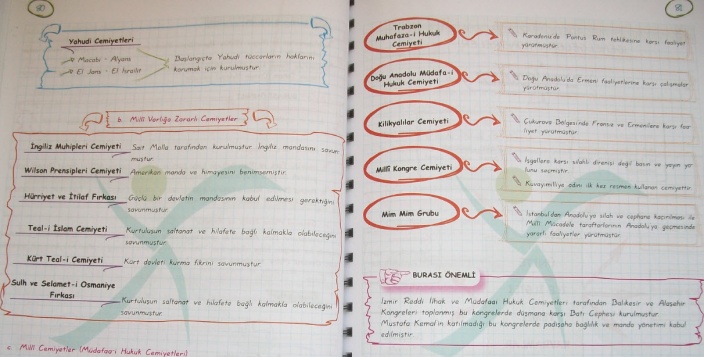 Yahudi Cemiyetleri
Macabi - Alyans
El Jans - El Israilit
Başlangıçta Yahudi tüccarların haklarını
korumak için kurulmuştur.
b. Milli Varlığa Zararlı Cemiyetler
İngiliz Muhipleri Cemiyeti Sait Molla tarafından kurulmuştur. İngiliz mandasını savun
muştur.
Wilson Prensipleri Cemiyeti Amerikan manda ve himayesini benimsemiştir.
Hürriyet ve İtilaf Fırkası Güçlü bir devletin mandasının kabul edilmesi gerektiğini
savunmuştur.
Teal-i İslam Cemiyeti Kurtuluşun saltanat ve hilafete bağlı kalmakla olabileceğini
savunmuştur.
Kürt Teal-i Cemiyeti Kürt devleti kurma fikrini savunmuştur.
Sulh ve Selamet-i Osmaniye
Fırkası
Kurtuluşun saltanat ve hilafete bağlı kalmakla olabileceğini
savunmuştur.
c. Milli Cemiyetler (Müdafaa-i Hukuk Cemiyetleri)
Trabzon
Muhafaza-i Hukuk
Cemiyeti
Karadeniz'de Pontus Rum tehlikesine karşı faaliyet
yürütmüştür.
Doğu Anadolu Müdafa-i
Hukuk Cemiyeti
Doğu Anadolu'da Ermeni faaliyetlerine karşı çalışmalar
yürütmüştür.
Kilikyalılar Cemiyeti
Çukurova Bölgesinde Fransa ve Ermenilere karşı faa
liyet yürütmüştür.
Millî Kongre Cemiyeti
İşgallere karşı silahlı direnişi değil basın ve yayın yo
lunu seçmiştir.
Kuvayımilliye adını ilk kez resmen kullanan cemiyettir.
Mim Mim Grubu
İstanbul'dan Anadolu'ya silah ve cephane kaçırılması ile
Milli Mücadele taraftarlarının Anadolu'ya geçmesinde
yararlı faaliyetler yürütmüştür.
BURASI ÖNEMLİ
İzmir Reddi İlhak ve Müdafaai Hukuk Cemiyetleri tarafından Balıkesir ve Alaşehir
Kongreleri toplanmış bu kongrelerde düşmana karşı Batı Cephesi kurulmuştur.
Mustafa Kemal'in katılmadığı bu kongrelerde padişaha bağlılık ve manda yönetimi kabul
edilmiştir.